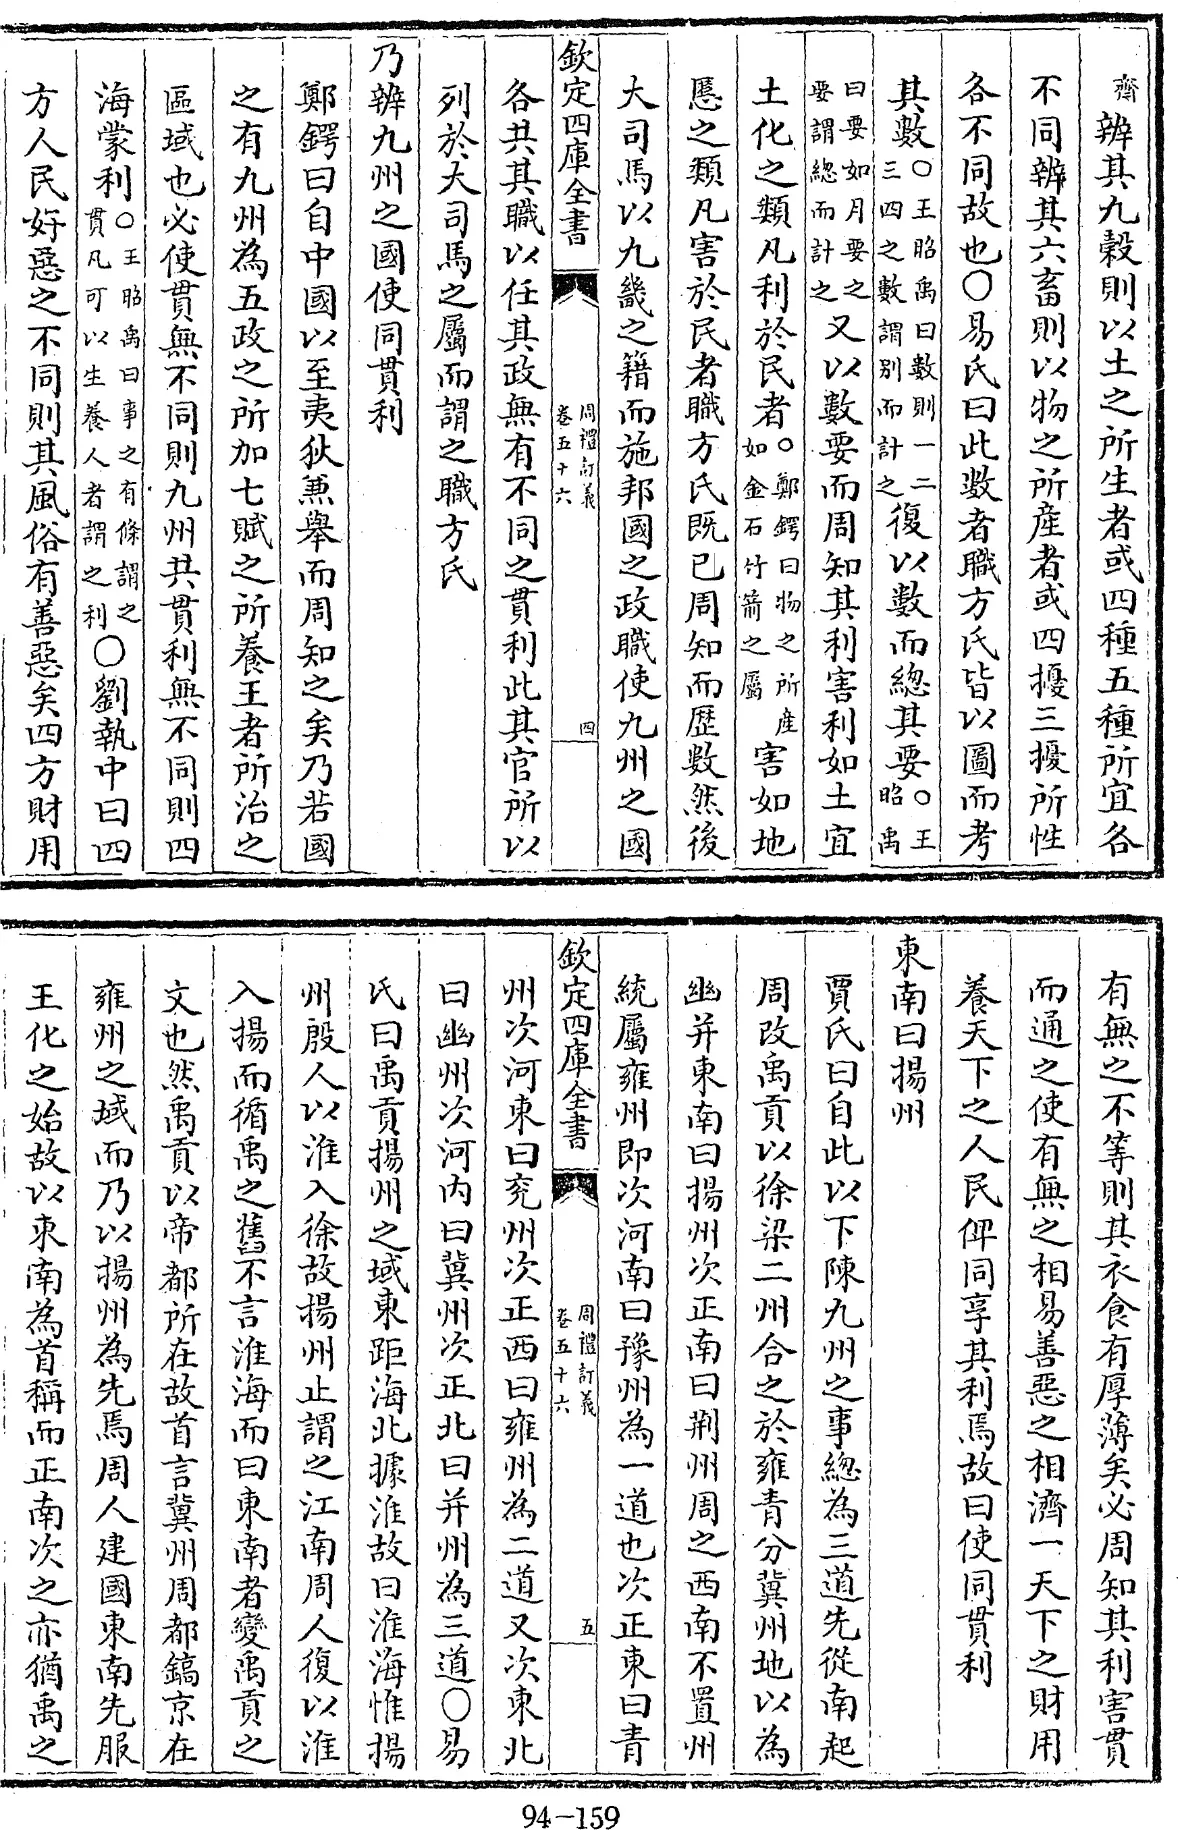 齊辨其九穀則以土之所生者或四種五種所宜各
不同辨其六畜則以物之所産者或四擾三擾所性
各不同故也〇易氏曰此數者職方氏皆以圖而考
其數〇王昭禹曰數則一二三四之數謂别而計之復以數而總其要〇王昭禹
曰要如月要之要謂總而計之又以數要而周知其利害利如土宜
土化之類凡利於民者〇鄭鍔曰物之所産如金石竹箭之屬害如地
慝之類凡害於民者職方氏既已周知而歴數然後
大司馬以九畿之籍而施邦國之政職使九州之國
欽定四庫全書
周禮訂義
卷五十六
四
各共其職以任其政無有不同之貫利此其官所以
列於大司馬之屬而謂之職方氏
乃辨九州之國使同貫利
鄭鍔曰自中國以至夷狄兼舉而周知之矣乃若國
之有九州為五政之所加七賦之所養王者所治之
區域也必使貫無不同則九州共貫利無不同則四
海蒙利〇王昭禹曰事之有條謂之貫凡可以生養人者謂之利〇劉執中曰四
方人民好惡之不同則其風俗有善惡矣四方財用
有無之不等則其衣食有厚薄矣必周知其利害貫
而通之使有無之相易善惡之相濟一天下之財用
養天下之人民俾同享其利焉故曰使同貫利
東南曰揚州
賈氏曰自此以下陳九州之事總為三道先從南起
周改禹貢以徐梁二州合之於雍青分冀州地以為
幽并東南曰揚州次正南曰荆州周之西南不置州
統屬雍州即次河南曰豫州為一道也次正東曰青
欽定四庫全書
周禮訂義
卷五十六
五
州次河東曰兖州次正西曰雍州為二道又次東北
曰幽州次河内曰冀州次正北曰并州為三道〇易
氏曰禹貢揚州之域東距海北據淮故曰淮海惟揚
州殷人以淮入徐故揚州止謂之江南周人復以淮
入揚而循禹之舊不言淮海而曰東南者變禹貢之
文也然禹貢以帝都所在故首言冀州周都鎬京在
雍州之域而乃以揚州為先焉周人建國東南先服
王化之始故以東南為首稱而正南次之亦猶禹之
94-159